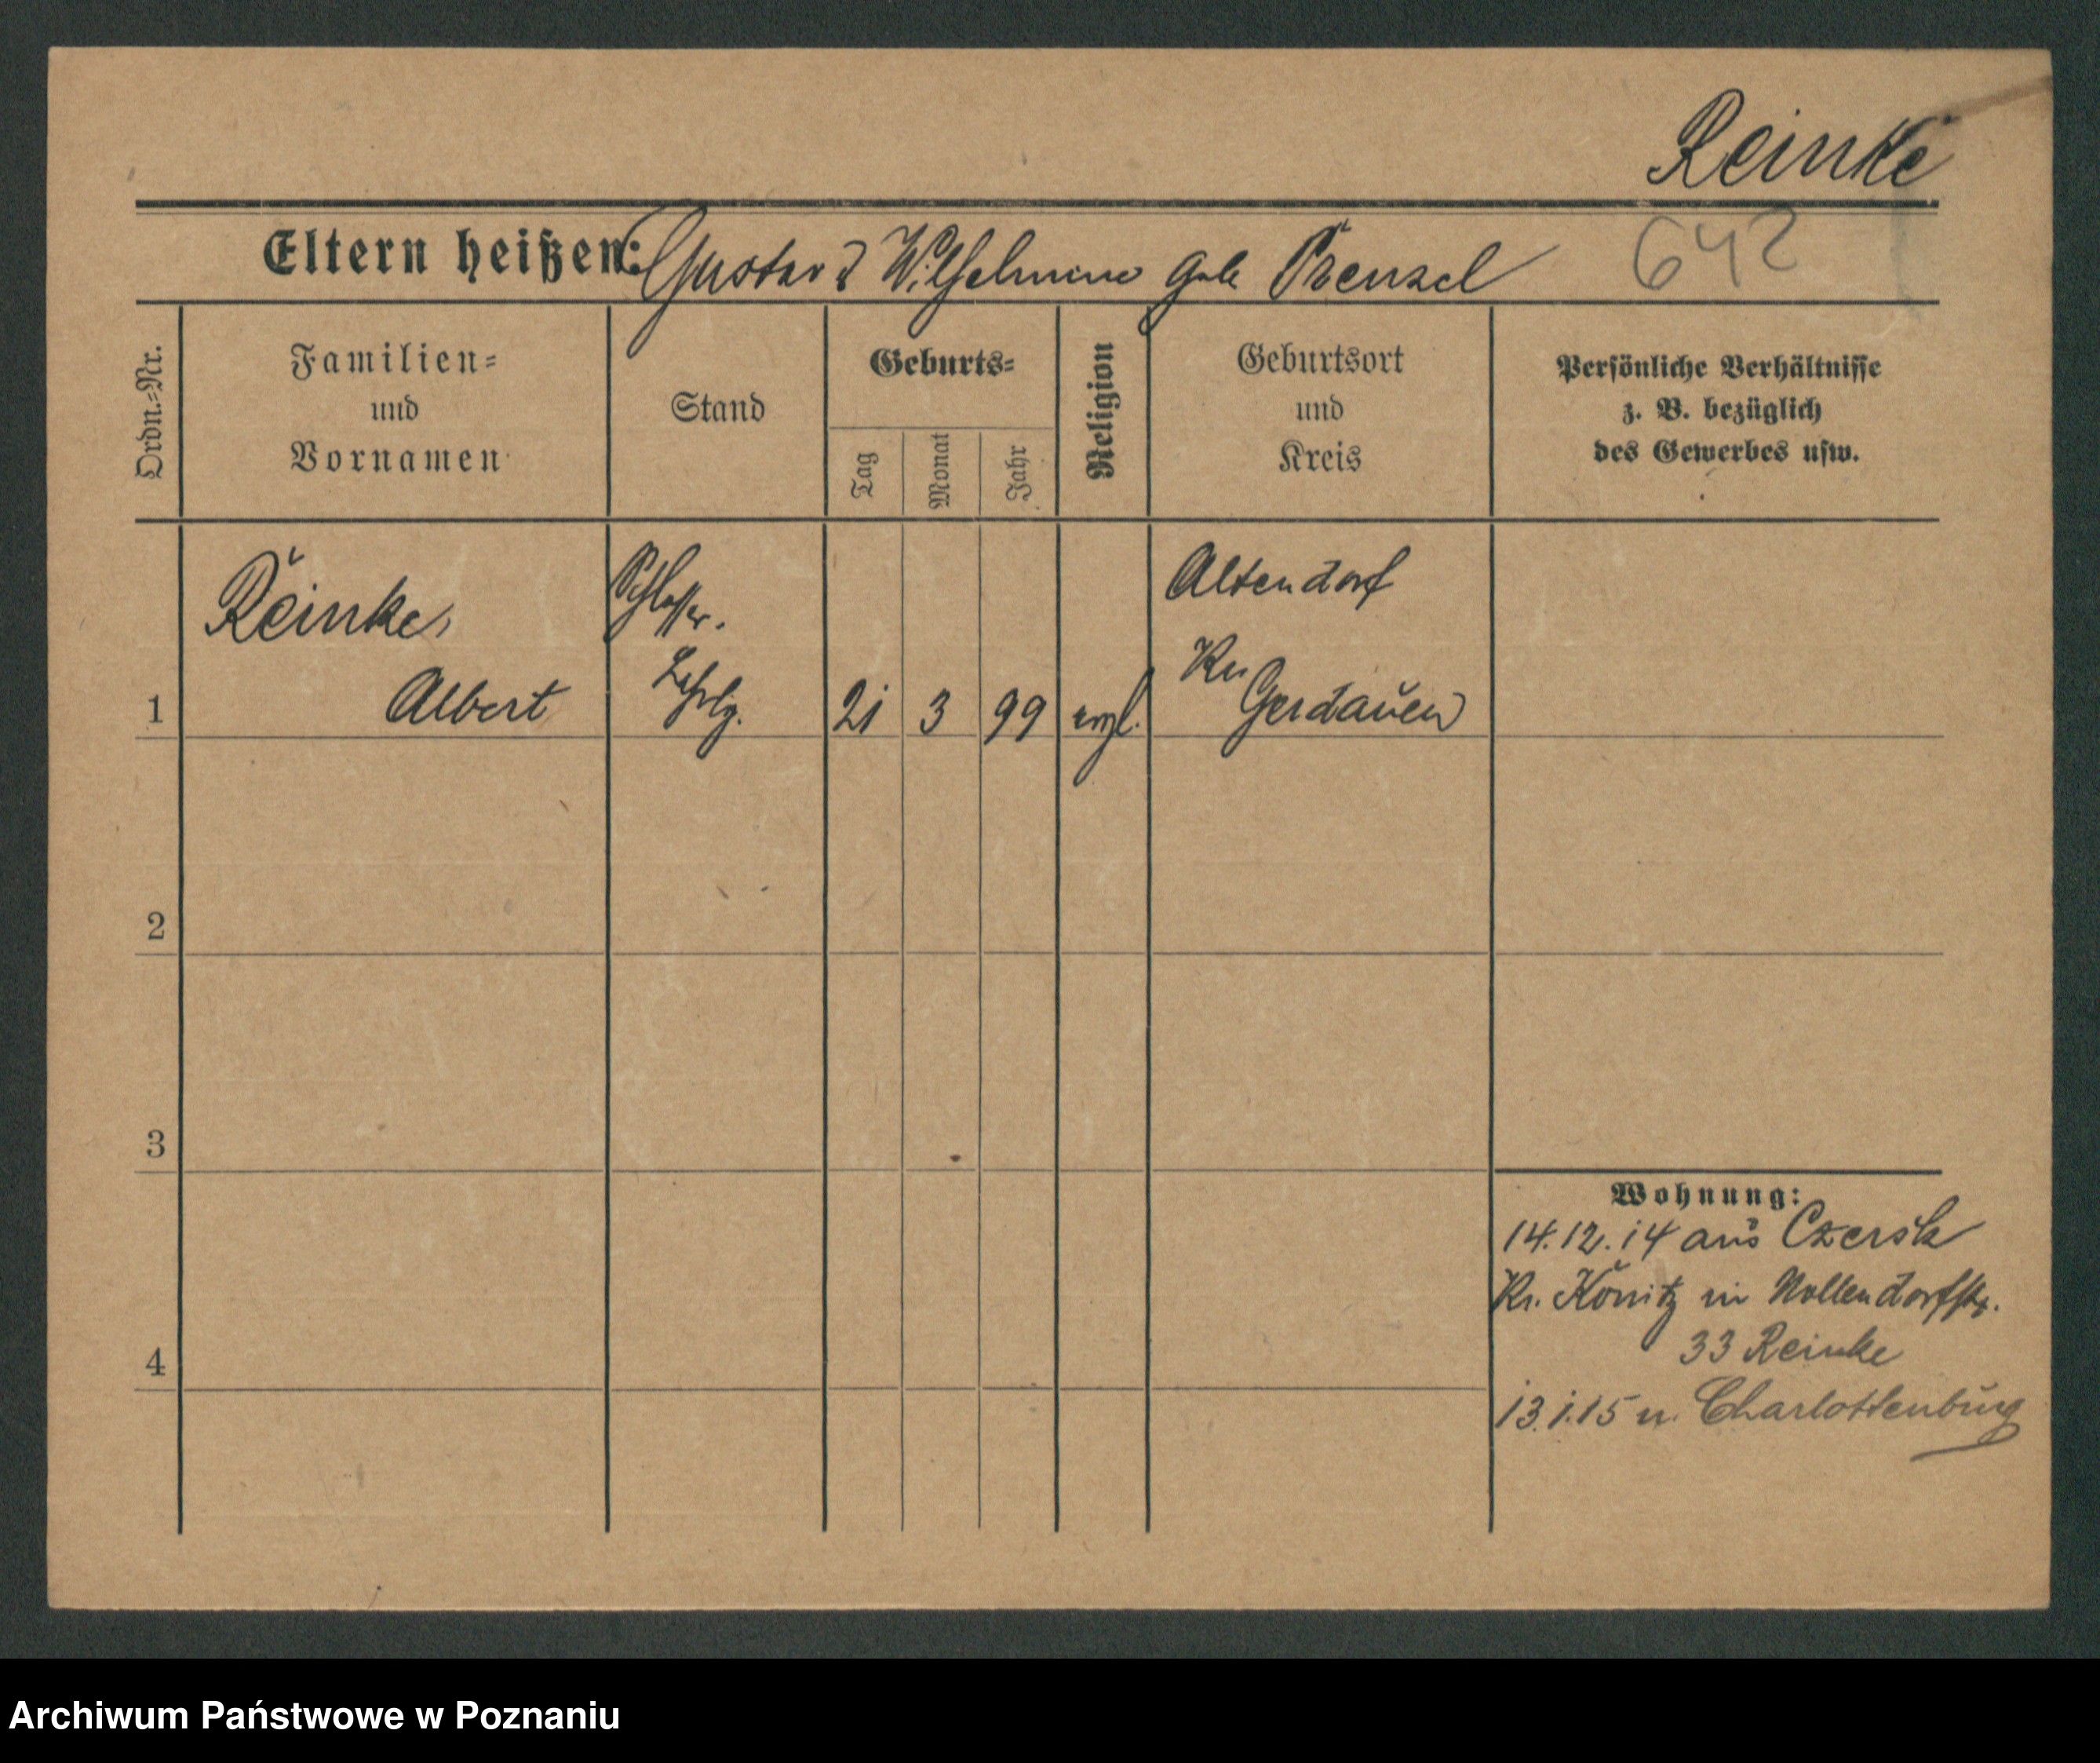 Reinke
Eltern heißen: Gustav & Wilhelmine geb Prenzel
642
Ordn.=Nr.
Familien=
und
Vornamen
Stand
Geburts=
Tag
Monat
Jahr
Religion
Geburtsort
und
Kreis
Persönliche Verhältnisse
z. B. bezüglich
des Gewerbes usw.
1
Reinke,
Albert
Schlosser.
Lehrlg.
21
3
99
evgl.
Altendorf
Kr.
Gerdauen
2
3
4
Wohnung:
14.12.14 aus Czersk
Kr. Könitz in Nollendorfstr.
33 Reinke
13.1.15 n. Charlottenburg
Archiwum Państwowe w Poznaniu